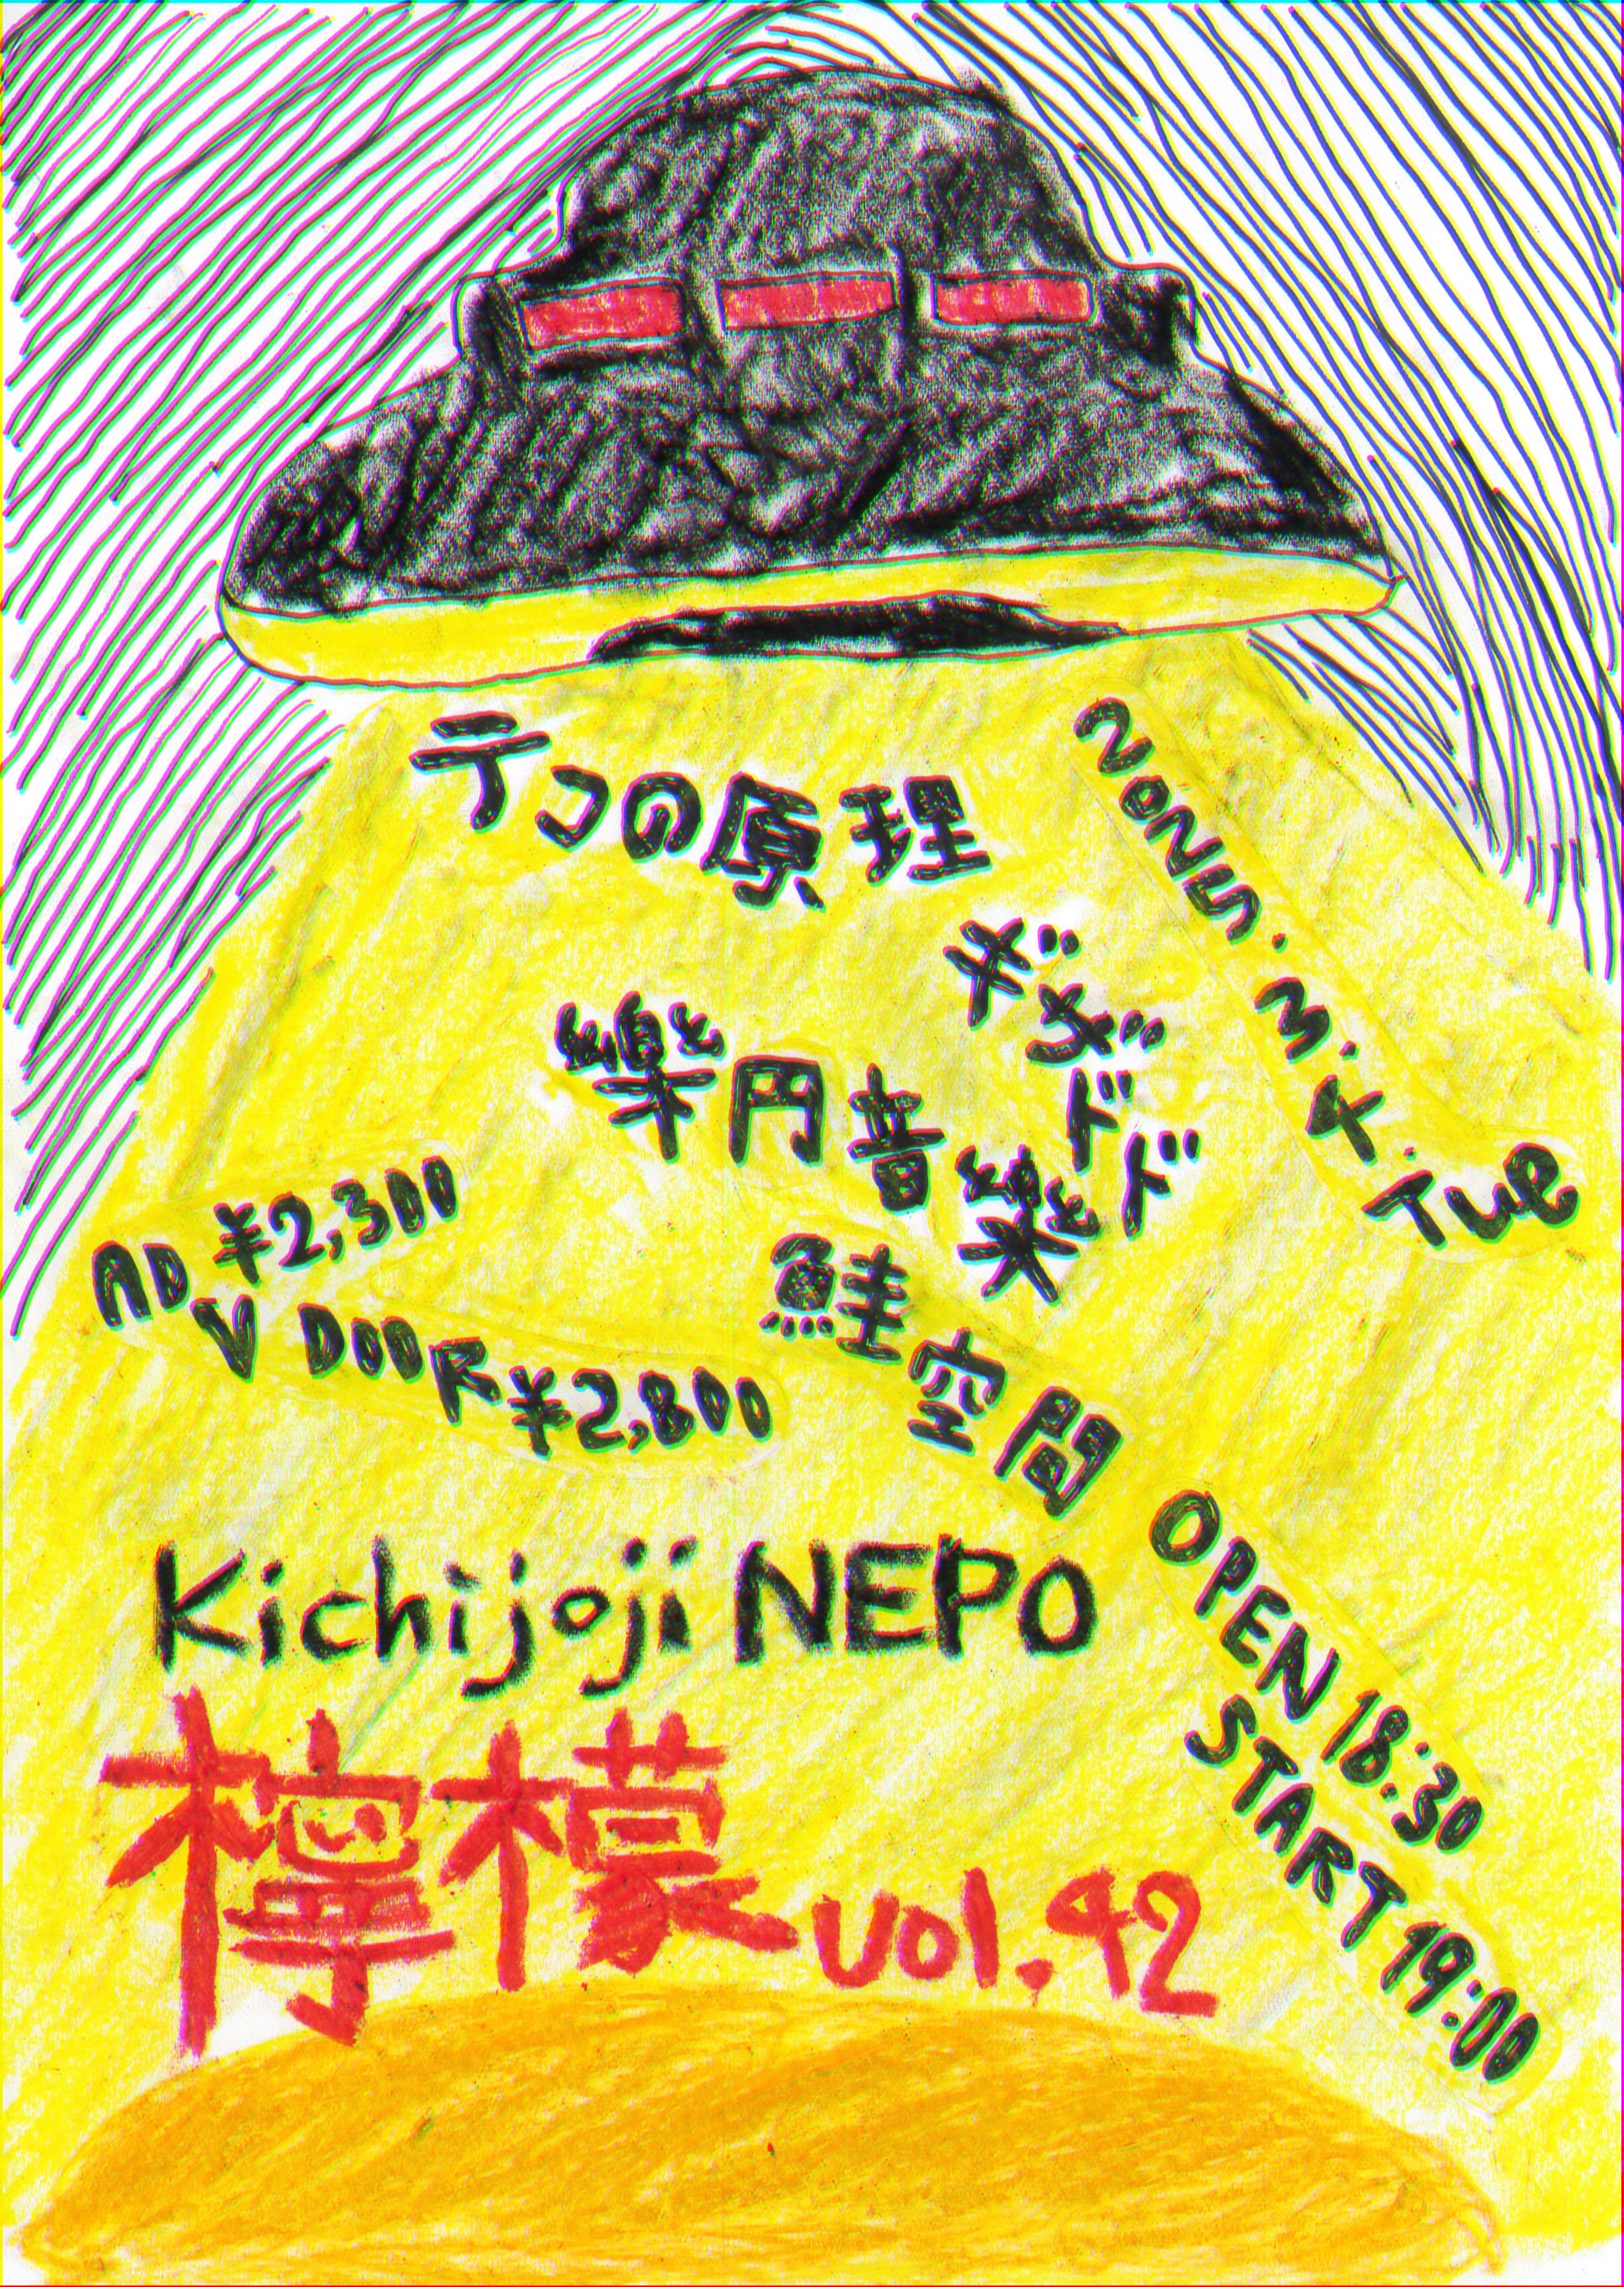 テコの原理
2025.3.4.Tue
樂円音樂
鮭空間
AD ¥2,300
V DOOR ¥2,800
Kichijoji NEPO
OPEN 18:30
START 19:00
檸檬 vol.42